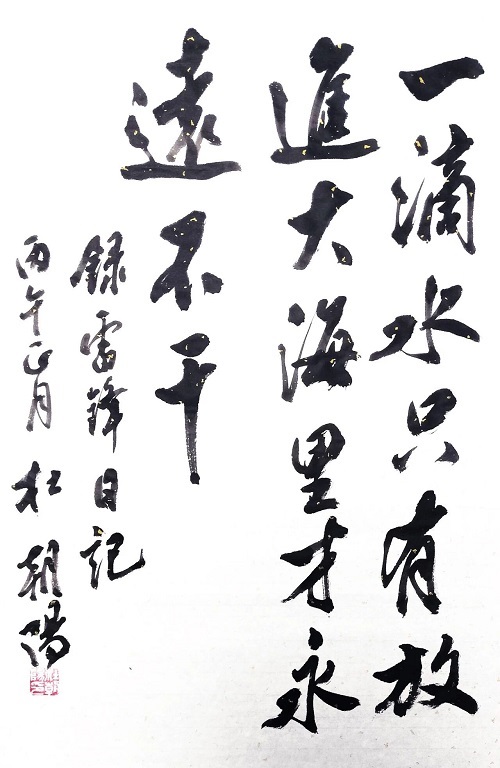 一滴水只有放
進大海里才永
遠不干
録雷鋒日記
丙午正月 杜朝陽